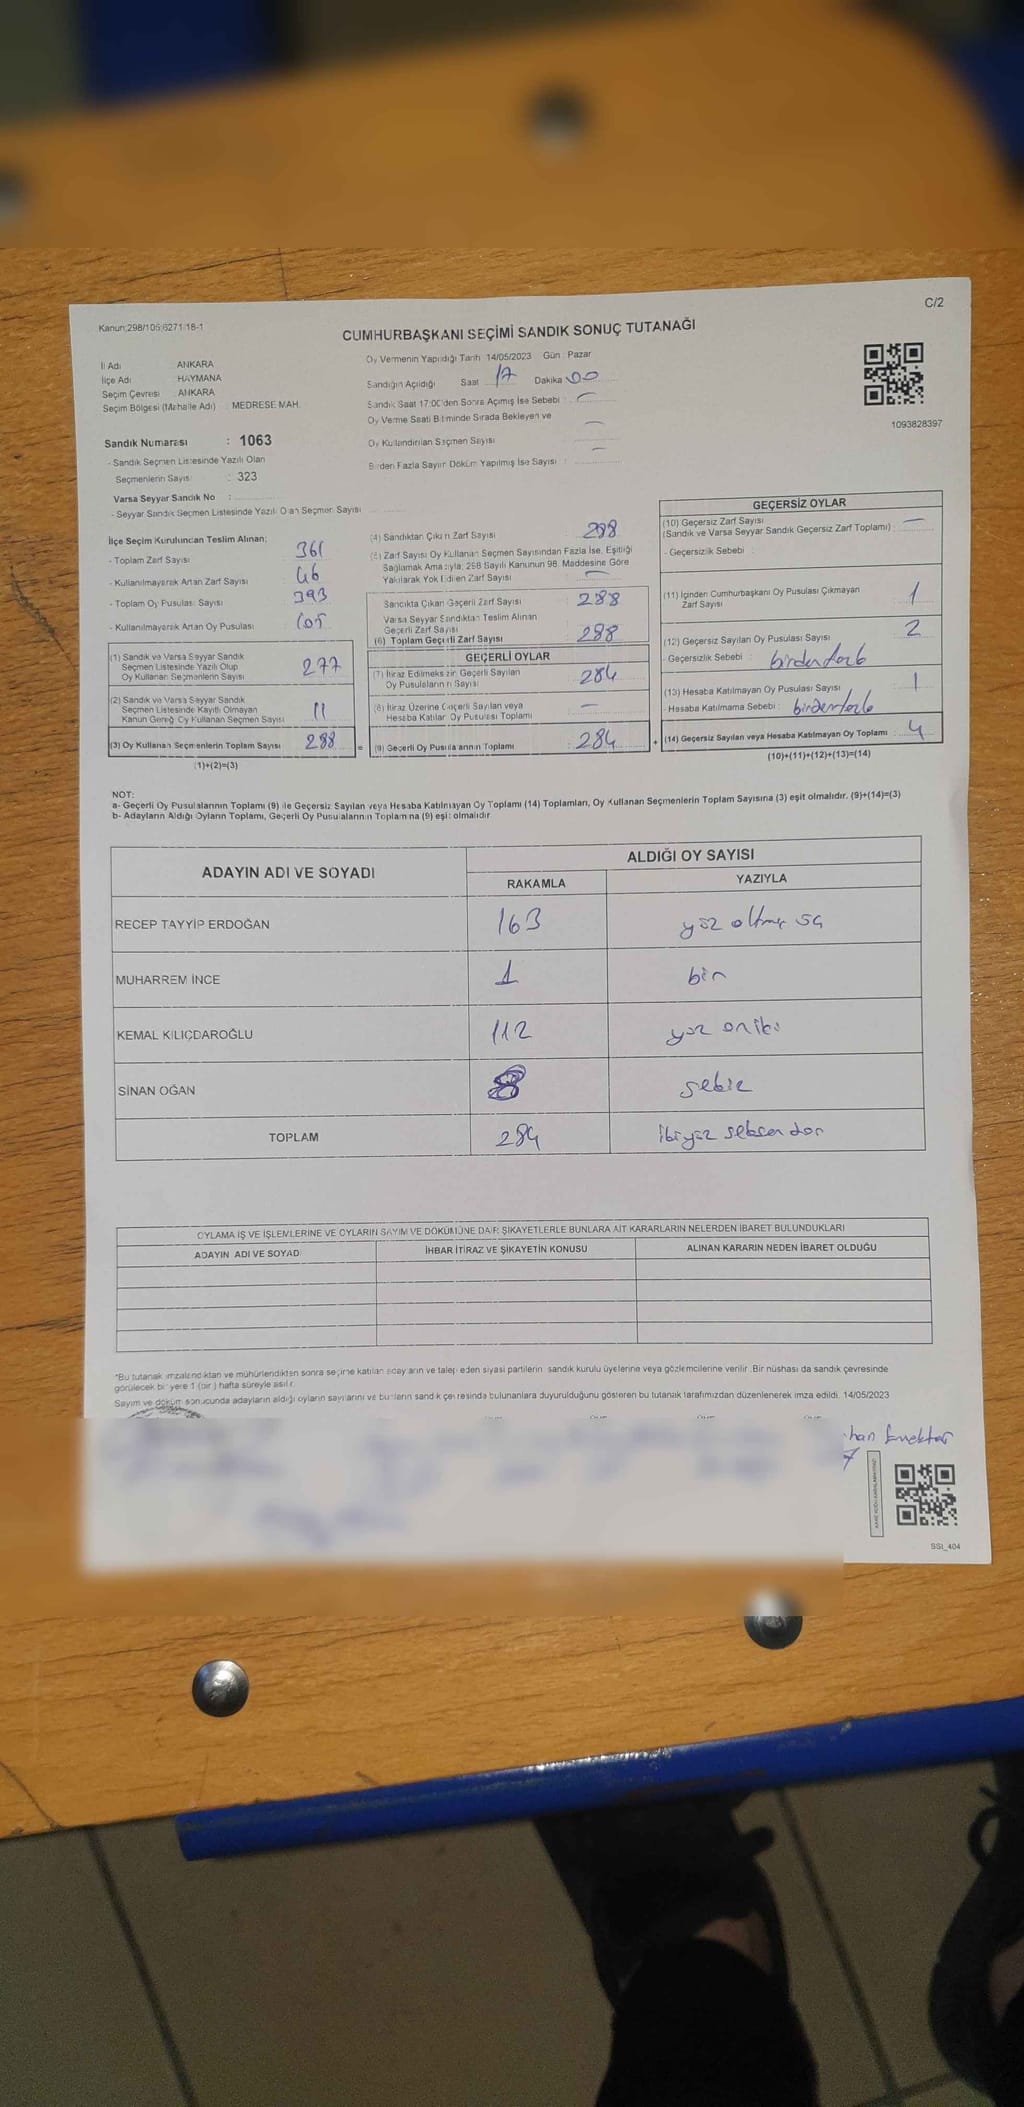 C/2
Kanun:298/105;6271/18-1
CUMHURBAŞKANI SEÇİMİ SANDIK SONUÇ TUTANAĞI
İl Adı : ANKARA
İlçe Adı : HAYMANA
Seçim Çevresi : ANKARA
Seçim Bölgesi (Mahalle Adı) : MEDRESE MAH.
Sandık Numarası : 1063
- Sandık Seçmen Listesinde Yazılı Olan
Seçmenlerin Sayısı : 323
Varsa Seyyar Sandık No :
- Seyyar Sandık Seçmen Listesinde Yazılı Olan Seçmen Sayısı
Oy Vermenin Yapıldığı Tarih 14/05/2023 Gün : Pazar
Sandığın Açıldığı Saat 17 Dakika 00
Sandık Saat 17:00'den Sonra Açımış İse Sebebi : —
Oy Verme Saati Bitiminde Sırada Bekleyen ve
Oy Kullandırılan Seçmen Sayısı —
Birden Fazla Sayım Döküm Yapılmış İse Sayısı : —
1093828397
İlçe Seçim Kurulundan Teslim Alınan;
- Toplam Zarf Sayısı 361
- Kullanılmayarak Artan Zarf Sayısı
- Toplam Oy Pusulası Sayısı 393
- Kullanılmayarak Artan Oy Pusulası
(1) Sandık ve Varsa Seyyar Sandık
Seçmen Listesinde Yazılı Olup
Oy Kullanan Seçmenlerin Sayısı 277
(2) Sandık ve Varsa Seyyar Sandık
Seçmen Listesinde Kayıtlı Olmayan
Kanun Gereği Oy Kullanan Seçmen Sayısı 11
(3) Oy Kullanan Seçmenlerin Toplam Sayısı 288 =
(1)+(2)=(3)
(4) Sandıktan Çıkan Zarf Sayısı : 288
(5) Zarf Sayısı Oy Kullanan Seçmen Sayısından Fazla İse, Eşitliği
Sağlamak Amacıyla; 298 Sayılı Kanunun 98. Maddesine Göre
Yakılarak Yok Edilen Zarf Sayısı : —
Sandıkta Çıkan Geçerli Zarf Sayısı : 288
Varsa Seyyar Sandıktan Teslim Alınan
Geçerli Zarf Sayısı
(6) Toplam Geçerli Zarf Sayısı : 288
GEÇERLİ OYLAR
(7) İtiraz Edilmeksizin Geçerli Sayılan
Oy Pusulalarının Sayısı : 284
(8) İtiraz Üzerine Geçerli Sayılan veya
Hesaba Katılan Oy Pusulası Toplamı : —
(9) Geçerli Oy Pusulalarının Toplamı : 284 +
GEÇERSİZ OYLAR
(10) Geçersiz Zarf Sayısı
(Sandık ve Varsa Seyyar Sandık Geçersiz Zarf Toplamı) : —
- Geçersizlik Sebebi :
(11) İçinden Cumhurbaşkanı Oy Pusulası Çıkmayan
Zarf Sayısı : 1
(12) Geçersiz Sayılan Oy Pusulası Sayısı : 2
- Geçersizlik Sebebi : birden fazla
(13) Hesaba Katılmayan Oy Pusulası Sayısı : 1
- Hesaba Katılmama Sebebi : birden fazla
(14) Geçersiz Sayılan veya Hesaba Katılmayan Oy Toplamı : 4
(10)+(11)+(12)+(13)=(14)
NOT:
a- Geçerli Oy Pusulalarının Toplamı (9) ile Geçersiz Sayılan veya Hesaba Katılmayan Oy Toplamı (14) Toplamları, Oy Kullanan Seçmenlerin Toplam Sayısına (3) eşit olmalıdır. (9)+(14)=(3)
b- Adayların Aldığı Oyların Toplamı, Geçerli Oy Pusulalarının Toplamına (9) eşit olmalıdır.
ADAYIN ADI VE SOYADI ALDIĞI OY SAYISI
RAKAMLA YAZIYLA
RECEP TAYYİP ERDOĞAN 163 yüz altmış üç
MUHARREM İNCE 1 bir
KEMAL KILIÇDAROĞLU 112 yüz oniki
SİNAN OĞAN 8 sekiz
TOPLAM 284 ikiyüz seksen dört
OYLAMA İŞ VE İŞLEMLERİNE VE OYLARIN SAYIM VE DÖKÜMÜNE DAİR ŞİKAYETLERLE BUNLARA AİT KARARLARIN NELERDEN İBARET BULUNDUKLARI
ADAYIN ADI VE SOYADI İHBAR İTİRAZ VE ŞİKAYETİN KONUSU ALINAN KARARIN NEDEN İBARET OLDUĞU
*Bu tutanak imzalandıktan ve mühürlendikten sonra seçime katılan adayların ve talep eden siyasi partilerin sandık kurulu üyelerine veya gözlemcilerine verilir. Bir nüshası da sandık çevresinde
görülecek bir yere 1 (bir) hafta süreyle asılır.
Sayım ve döküm sonucunda adayların aldığı oyların sayılarını ve bunların sandık çevresinde bulunanlara duyurulduğunu gösteren bu tutanak tarafımızdan düzenlenerek imza edildi. 14/05/2023
SSI_404